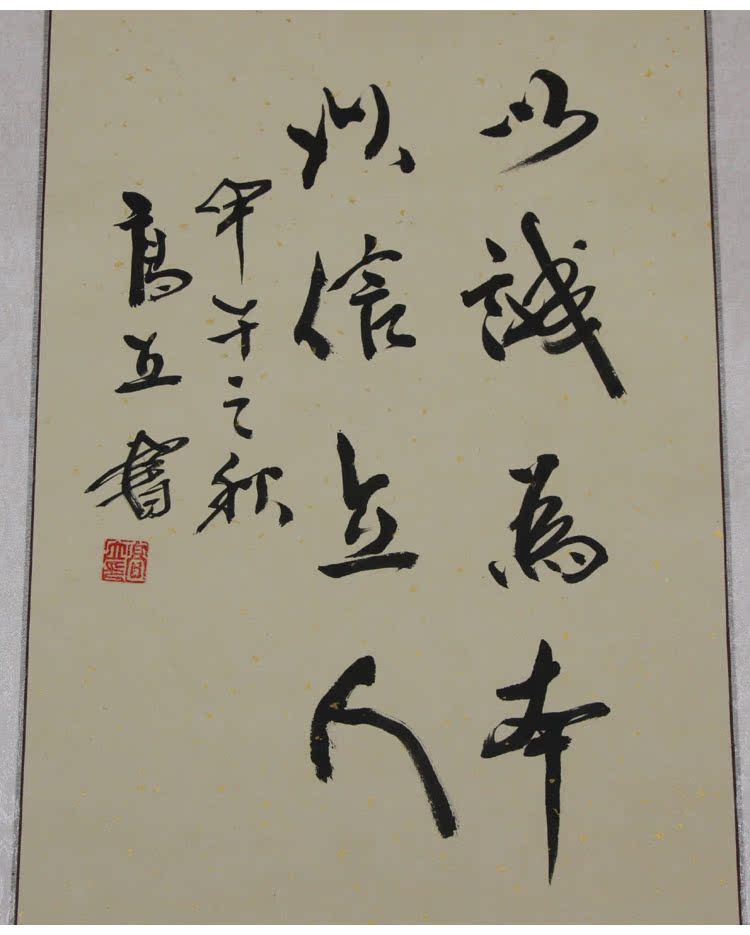 以誠為本
以信立人
甲午之秋
高立書
高立印